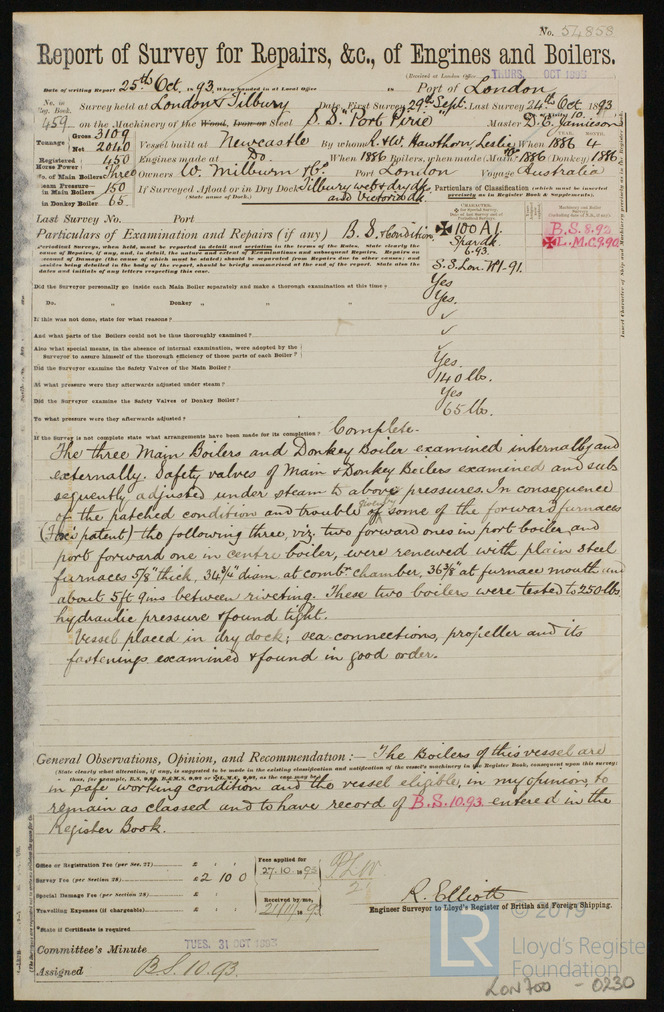 No. 54858
Report of Survey for Repairs, &c., of Engines and Boilers.
(Received at London Office THURS. OCT 1893
Date of writing Report 25th Oct. 1893, When handed in at Local Office Port of London
No. in Reg. Book. Survey held at London & Tilbury Date, First Survey 29th Sept. Last Survey 24th Oct. 1893
459 on the Machinery of the Wood, Iron or Steel S.S. "Port Pirie" Master D.E. Jamieson
Tonnage Gross 3109 Net 2040 Vessel built at Newcastle By whom R. & W. Hawthorn, Leslie When 1886 4
Registered Horse Power 450 Engines made at Do. When 1886 Boilers, when made (Main) 1886 (Donkey) 1886
No. of Main Boilers Three Owners W. Milburn & Co. Port London Voyage Australia
Steam Pressure in Main Boilers 150 If Surveyed Afloat or in Dry Dock Tilbury wet & dry dk.
(State name of Dock.) and Victoria dk.
in Donkey Boiler 65.
Particulars of Classification (which must be inserted precisely as in Register Book & Supplements).
Last Survey No. Port
Particulars of Examination and Repairs (if any) B.S. & Condition
✠100A1. Spar dk. 6.93. S.S. Lon. No1-91.
B.S. 8.92 ✠L.M.C. 9.90
Periodical Surveys, when held, must be reported in detail and seriatim in the terms of the Rules. State clearly the
cause of Repairs, if any, and, in detail, the nature and extent of Examinations and subsequent Repairs. Repairs on
account of Damage (the cause of which must be stated) should be separated from Repairs due to other causes; and
besides being detailed in the body of the report, should be briefly summarised at the end of the report. State also the
dates and initials of any letters respecting this case.
Did the Surveyor personally go inside each Main Boiler separately and make a thorough examination at this time? Yes
Do. " Donkey " " " Yes.
If this was not done, state for what reasons? ✓
And what parts of the Boilers could not be thus thoroughly examined? ✓
Also what special means, in the absence of internal examination, were adopted by the
Surveyor to assure himself of the thorough efficiency of those parts of each Boiler? ✓
Did the Surveyor examine the Safety Valves of the Main Boiler? Yes.
At what pressure were they afterwards adjusted under steam? 140 lbs.
Did the Surveyor examine the Safety Valves of Donkey Boiler? Yes
To what pressure were they afterwards adjusted? 65 lbs.
If the Survey is not complete state what arrangements have been made for its completion? Complete.
The three Main Boilers and Donkey Boiler examined internally and
externally. Safety valves of Main & Donkey Boilers examined and sub
sequently adjusted under steam to above pressures. In consequence
of the patched condition and trouble given by some of the forward furnaces
(Fox's patent) the following three, viz. two forward ones in port boiler, and
port forward one in centre boiler, were renewed with plain steel
furnaces 5/8" thick, 34 3/4" diam. at combn chamber, 36 3/8" at furnace mouth and
about 5ft 9ins between riveting. These two boilers were tested to 250 lbs
hydraulic pressure & found tight.
Vessel placed in dry dock; sea connections, propeller and its
fastenings examined & found in good order.
General Observations, Opinion, and Recommendation:— The Boilers of this vessel are
(State clearly what alteration, if any, is suggested to be made in the existing classification and notification of the vessel's machinery in the Register Book, consequent upon this survey;
thus, for example, B.S. 9.92, B.&M.S. 9.92 or ✠L.M.C. 9.92, as the case may be.)
in safe working condition and the vessel eligible, in my opinion, to
remain as classed and to have record of B.S. 10.93. entered in the
Register Book.
Office or Registration Fee (per Sec. 27) £
Survey Fee (per Section 28) £2 10 0
Special Damage Fee (per Section 28) £
Travelling Expenses (if chargeable) £
Fee applied for 27.10.1893
Received by me,
R. Elliott
Engineer Surveyor to Lloyd's Register of British and Foreign Shipping.
*State if Certificate is required
Committee's Minute TUES. 31 OCT 1893
Assigned B.S. 10.93.
© 2019
LR
Lloyd's Register
Foundation
LON700 - 0230